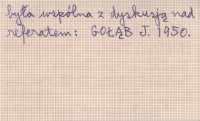 była wspólna z dyskusją nad
referatem: GOŁĄB J. 1950.